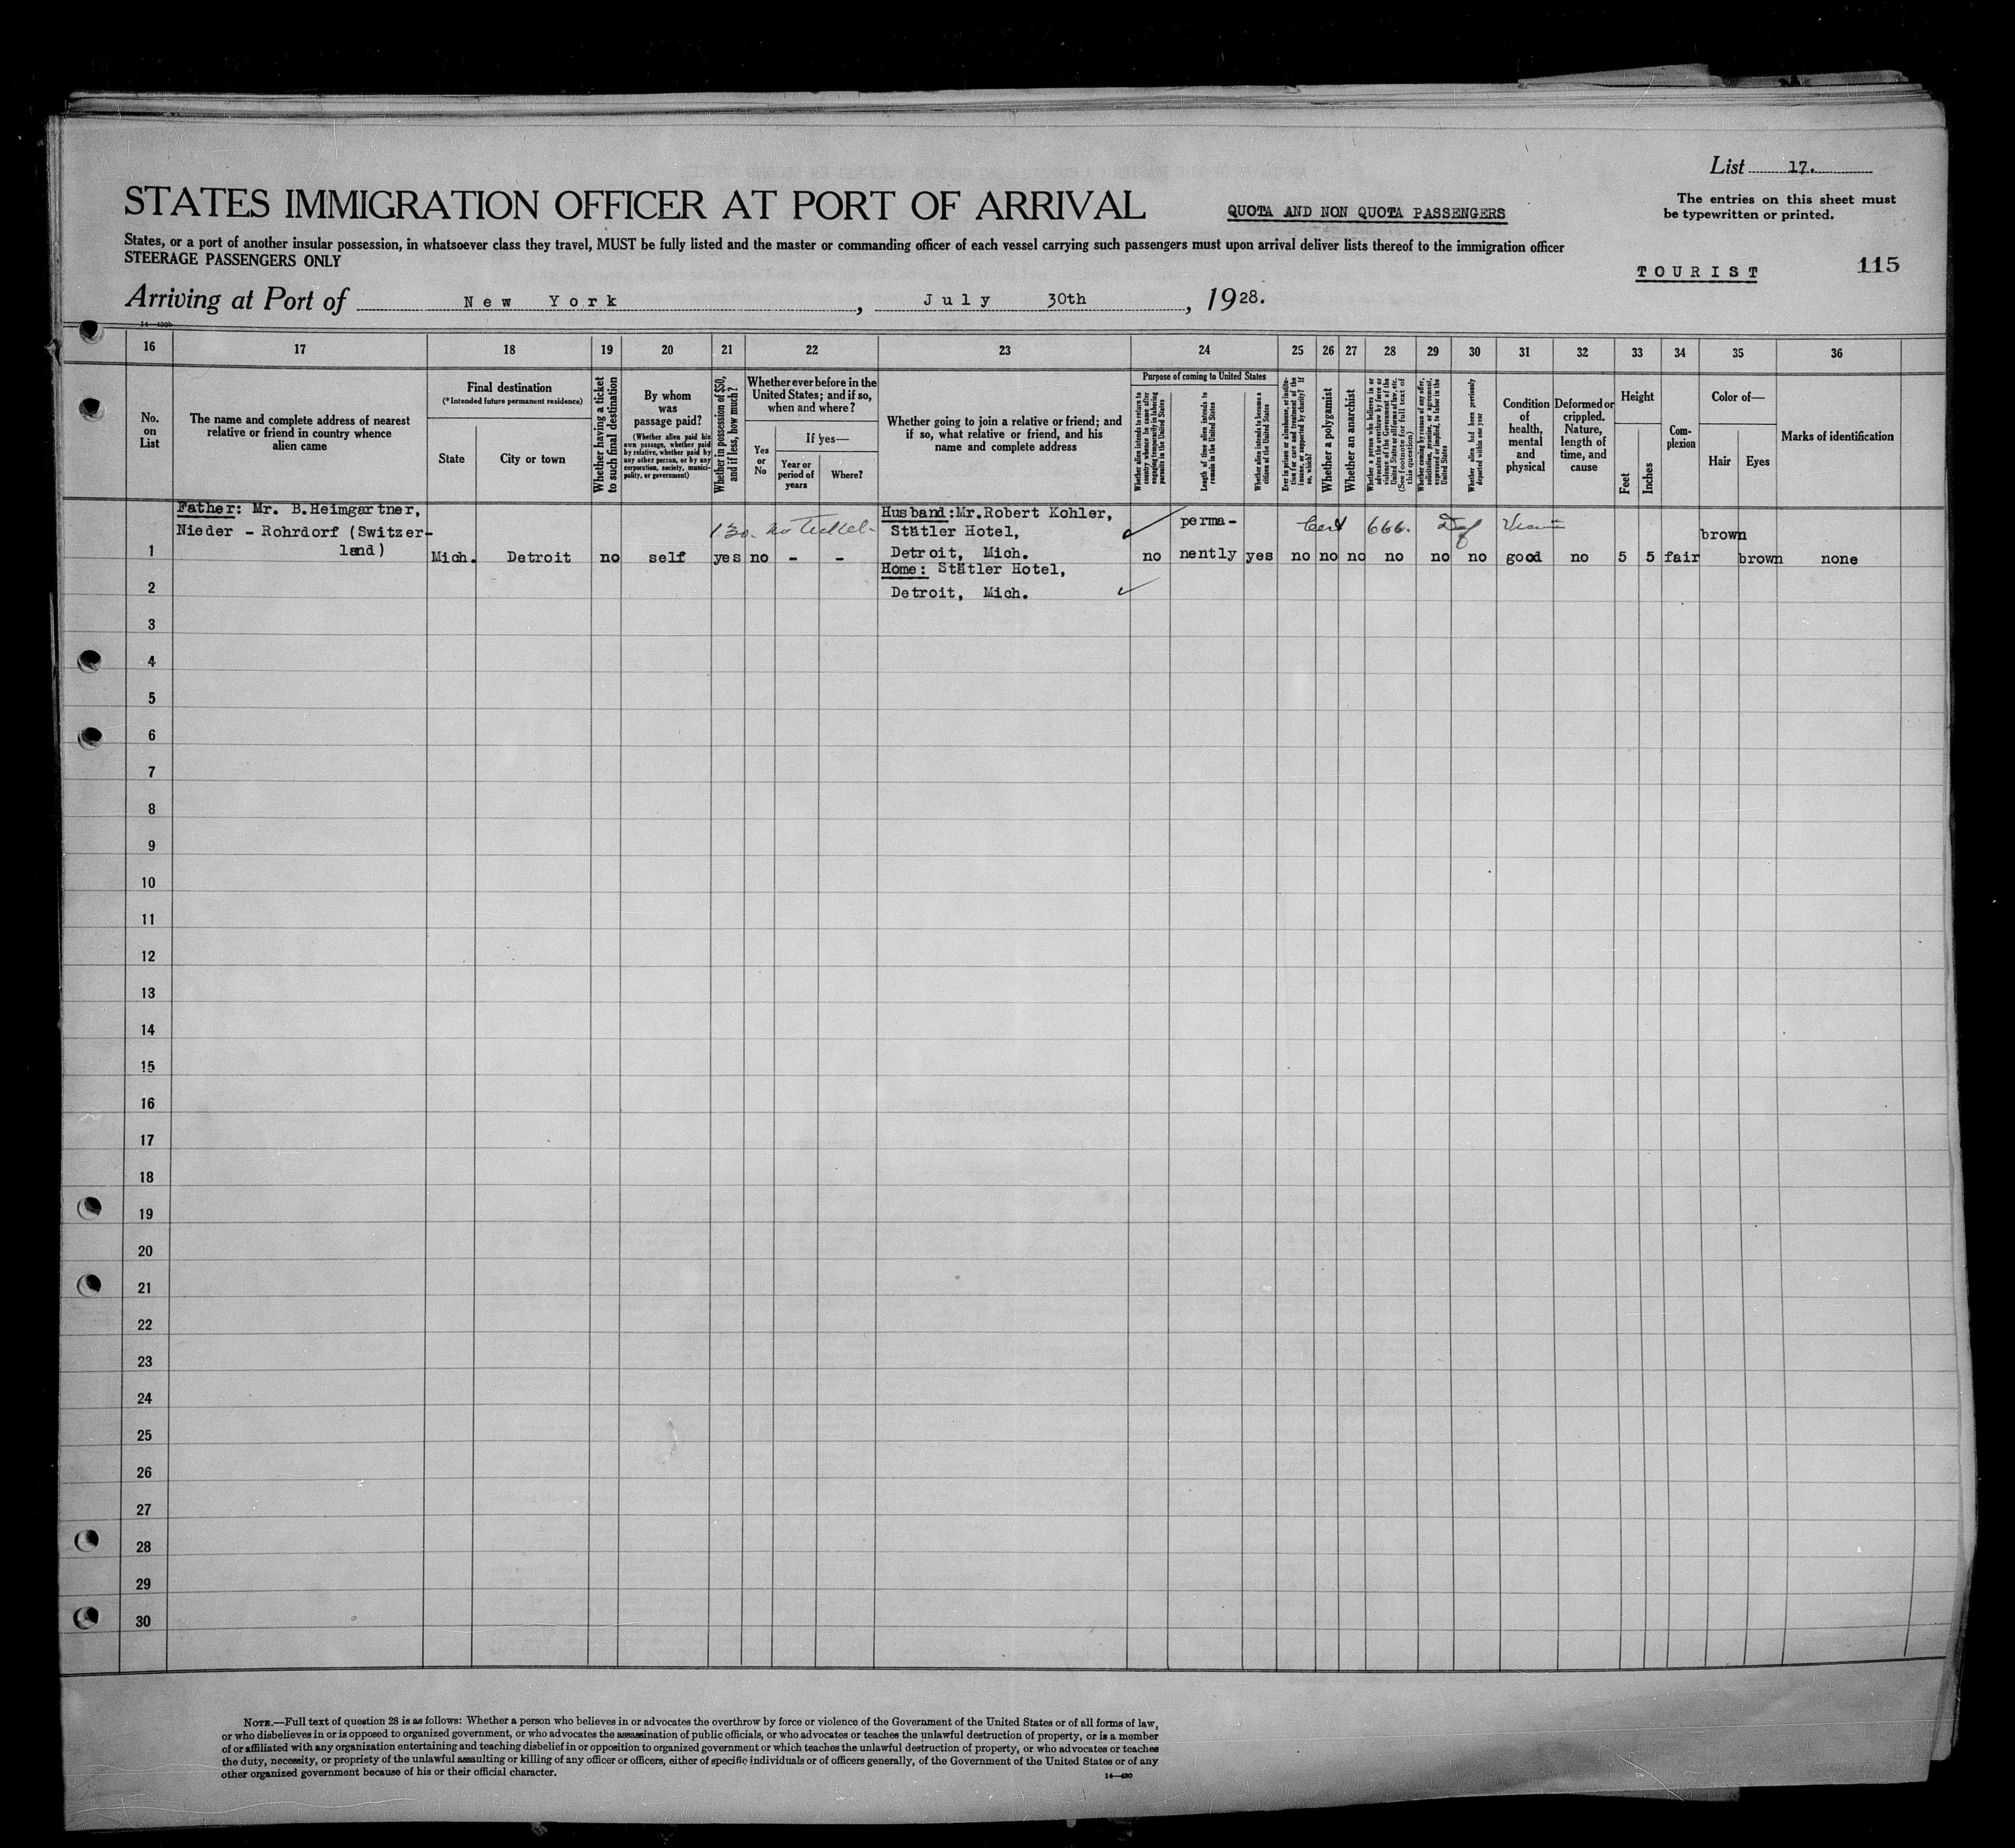 List 17.
STATES IMMIGRATION OFFICER AT PORT OF ARRIVAL
QUOTA AND NON QUOTA PASSENGERS
The entries on this sheet must
be typewritten or printed.
States, or a port of another insular possession, in whatsoever class they travel, MUST be fully listed and the master or commanding officer of each vessel carrying such passengers must upon arrival deliver lists thereof to the immigration officer
STEERAGE PASSENGERS ONLY
TOURIST
115
Arriving at Port of New York, July 30th, 1928.
14—430b
16 17 18 19 20 21 22 23 24 25 26 27 28 29 30 31 32 33 34 35 36
No.
on
List
The name and complete address of nearest
relative or friend in country whence
alien came
Final destination
(*Intended future permanent residence)
State
City or town
Whether having a ticket
to such final destination
By whom
was
passage paid?
(Whether alien paid his
own passage, whether paid
by relative, whether paid by
any other person, or by any
corporation, society, munici-
pality, or government)
Whether in possession of $50,
and if less, how much?
Whether ever before in the
United States; and if so,
when and where?
Yes
or
No
If yes—
Year or
period of
years
Where?
Whether going to join a relative or friend; and
if so, what relative or friend, and his
name and complete address
Purpose of coming to United States
Whether alien intends to return to
country whence he came after
engaging temporarily in laboring
pursuits in the United States
Length of time alien intends to
remain in the United States
Whether alien intends to become a
citizen of the United States
Ever in prison or almshouse, or institu-
tion for care and treatment of the
insane, or supported by charity? If
so, which?
Whether a polygamist
Whether an anarchist
Whether a person who believes in or
advocates the overthrow by force or
violence of the Government of the
United States or all forms of law, etc.
(See footnote for full text of
this question)
Whether coming by reason of any offer,
solicitation, promise, or agreement,
expressed or implied, to labor in the
United States
Whether alien had been previously
deported within one year
Condition
of
health,
mental
and
physical
Deformed or
crippled.
Nature,
length of
time, and
cause
Height
Feet
Inches
Com-
plexion
Color of—
Hair
Eyes
Marks of identification
Father: Mr. B.Heimgartner,
Nieder - Rohrdorf (Switzer-
land)
130.
Husband:Mr.Robert Kohler,
Stätler Hotel,
Detroit, Mich.
perma-
Cert 666.
brown
1 Mich. Detroit no self yes no - - no nently yes no no no no no no good no 5 5 fair brown none
Home: Stätler Hotel,
2 Detroit, Mich.
3
4
5
6
7
8
9
10
11
12
13
14
15
16
17
18
19
20
21
22
23
24
25
26
27
28
29
30
NOTE.—Full text of question 28 is as follows: Whether a person who believes in or advocates the overthrow by force or violence of the Government of the United States or of all forms of law,
or who disbelieves in or is opposed to organized government, or who advocates the assassination of public officials, or who advocates or teaches the unlawful destruction of property, or is a member
of or affiliated with any organization entertaining and teaching disbelief in or opposition to organized government or which teaches the unlawful destruction of property, or who advocates or teaches
the duty, necessity, or propriety of the unlawful assaulting or killing of any officer or officers, either of specific individuals or of officers generally, of the Government of the United States or of any
other organized government because of his or their official character.
14—430